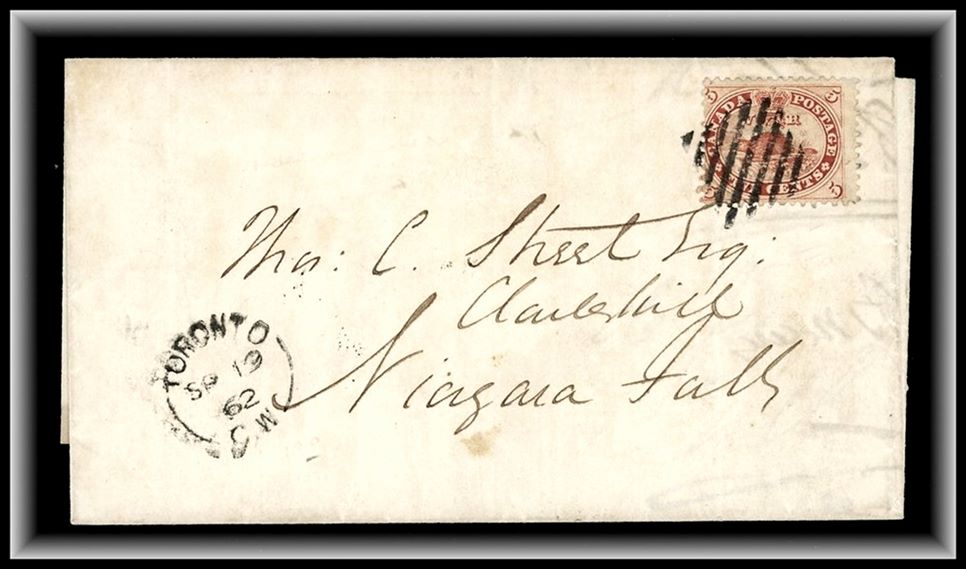 5 5
CANADA POSTAGE
V R
CENTS
5 5
Thos: C. Street Esq:
Clarkhill
Niagara Falls
TORONTO
SP 19
62
C.W